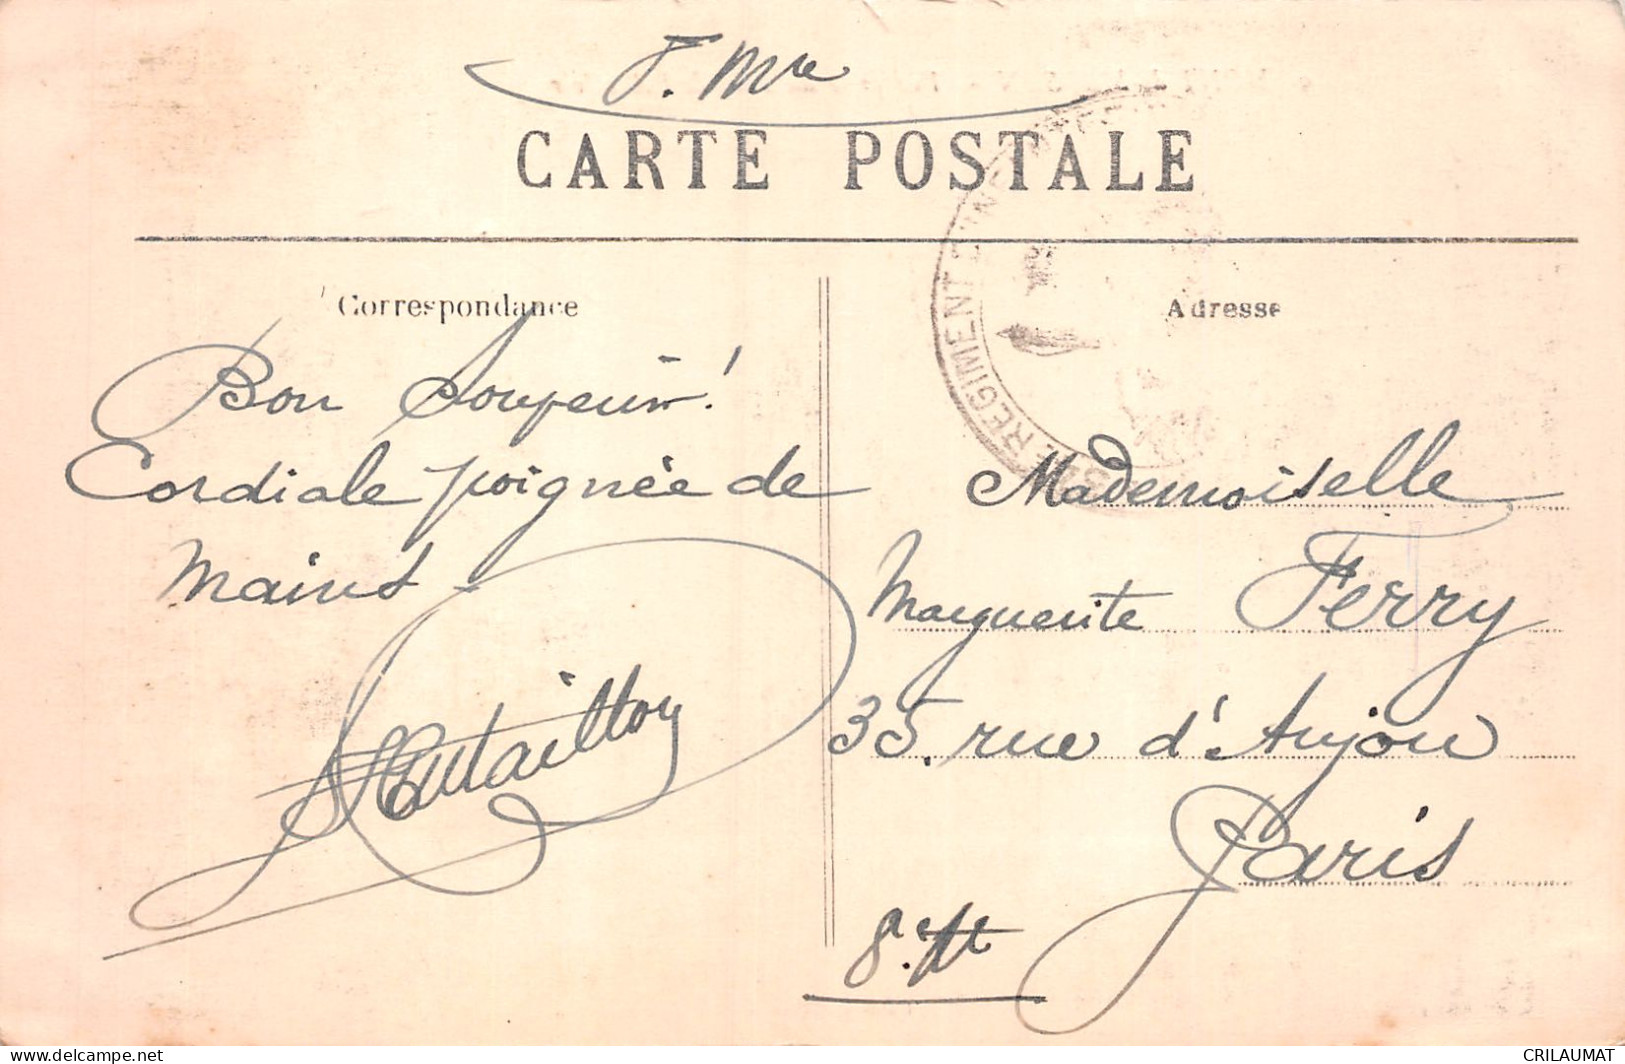 F. Mre
CARTE POSTALE
RÉGIMENT D'INF
Correspondance
Adresse
Bon Souvenir!
Cordiale poignée de
mains
Mademoiselle
Marguerite Ferry
35. rue d'Anjou
Paris
www.delcampe.net
CRILAUMAT